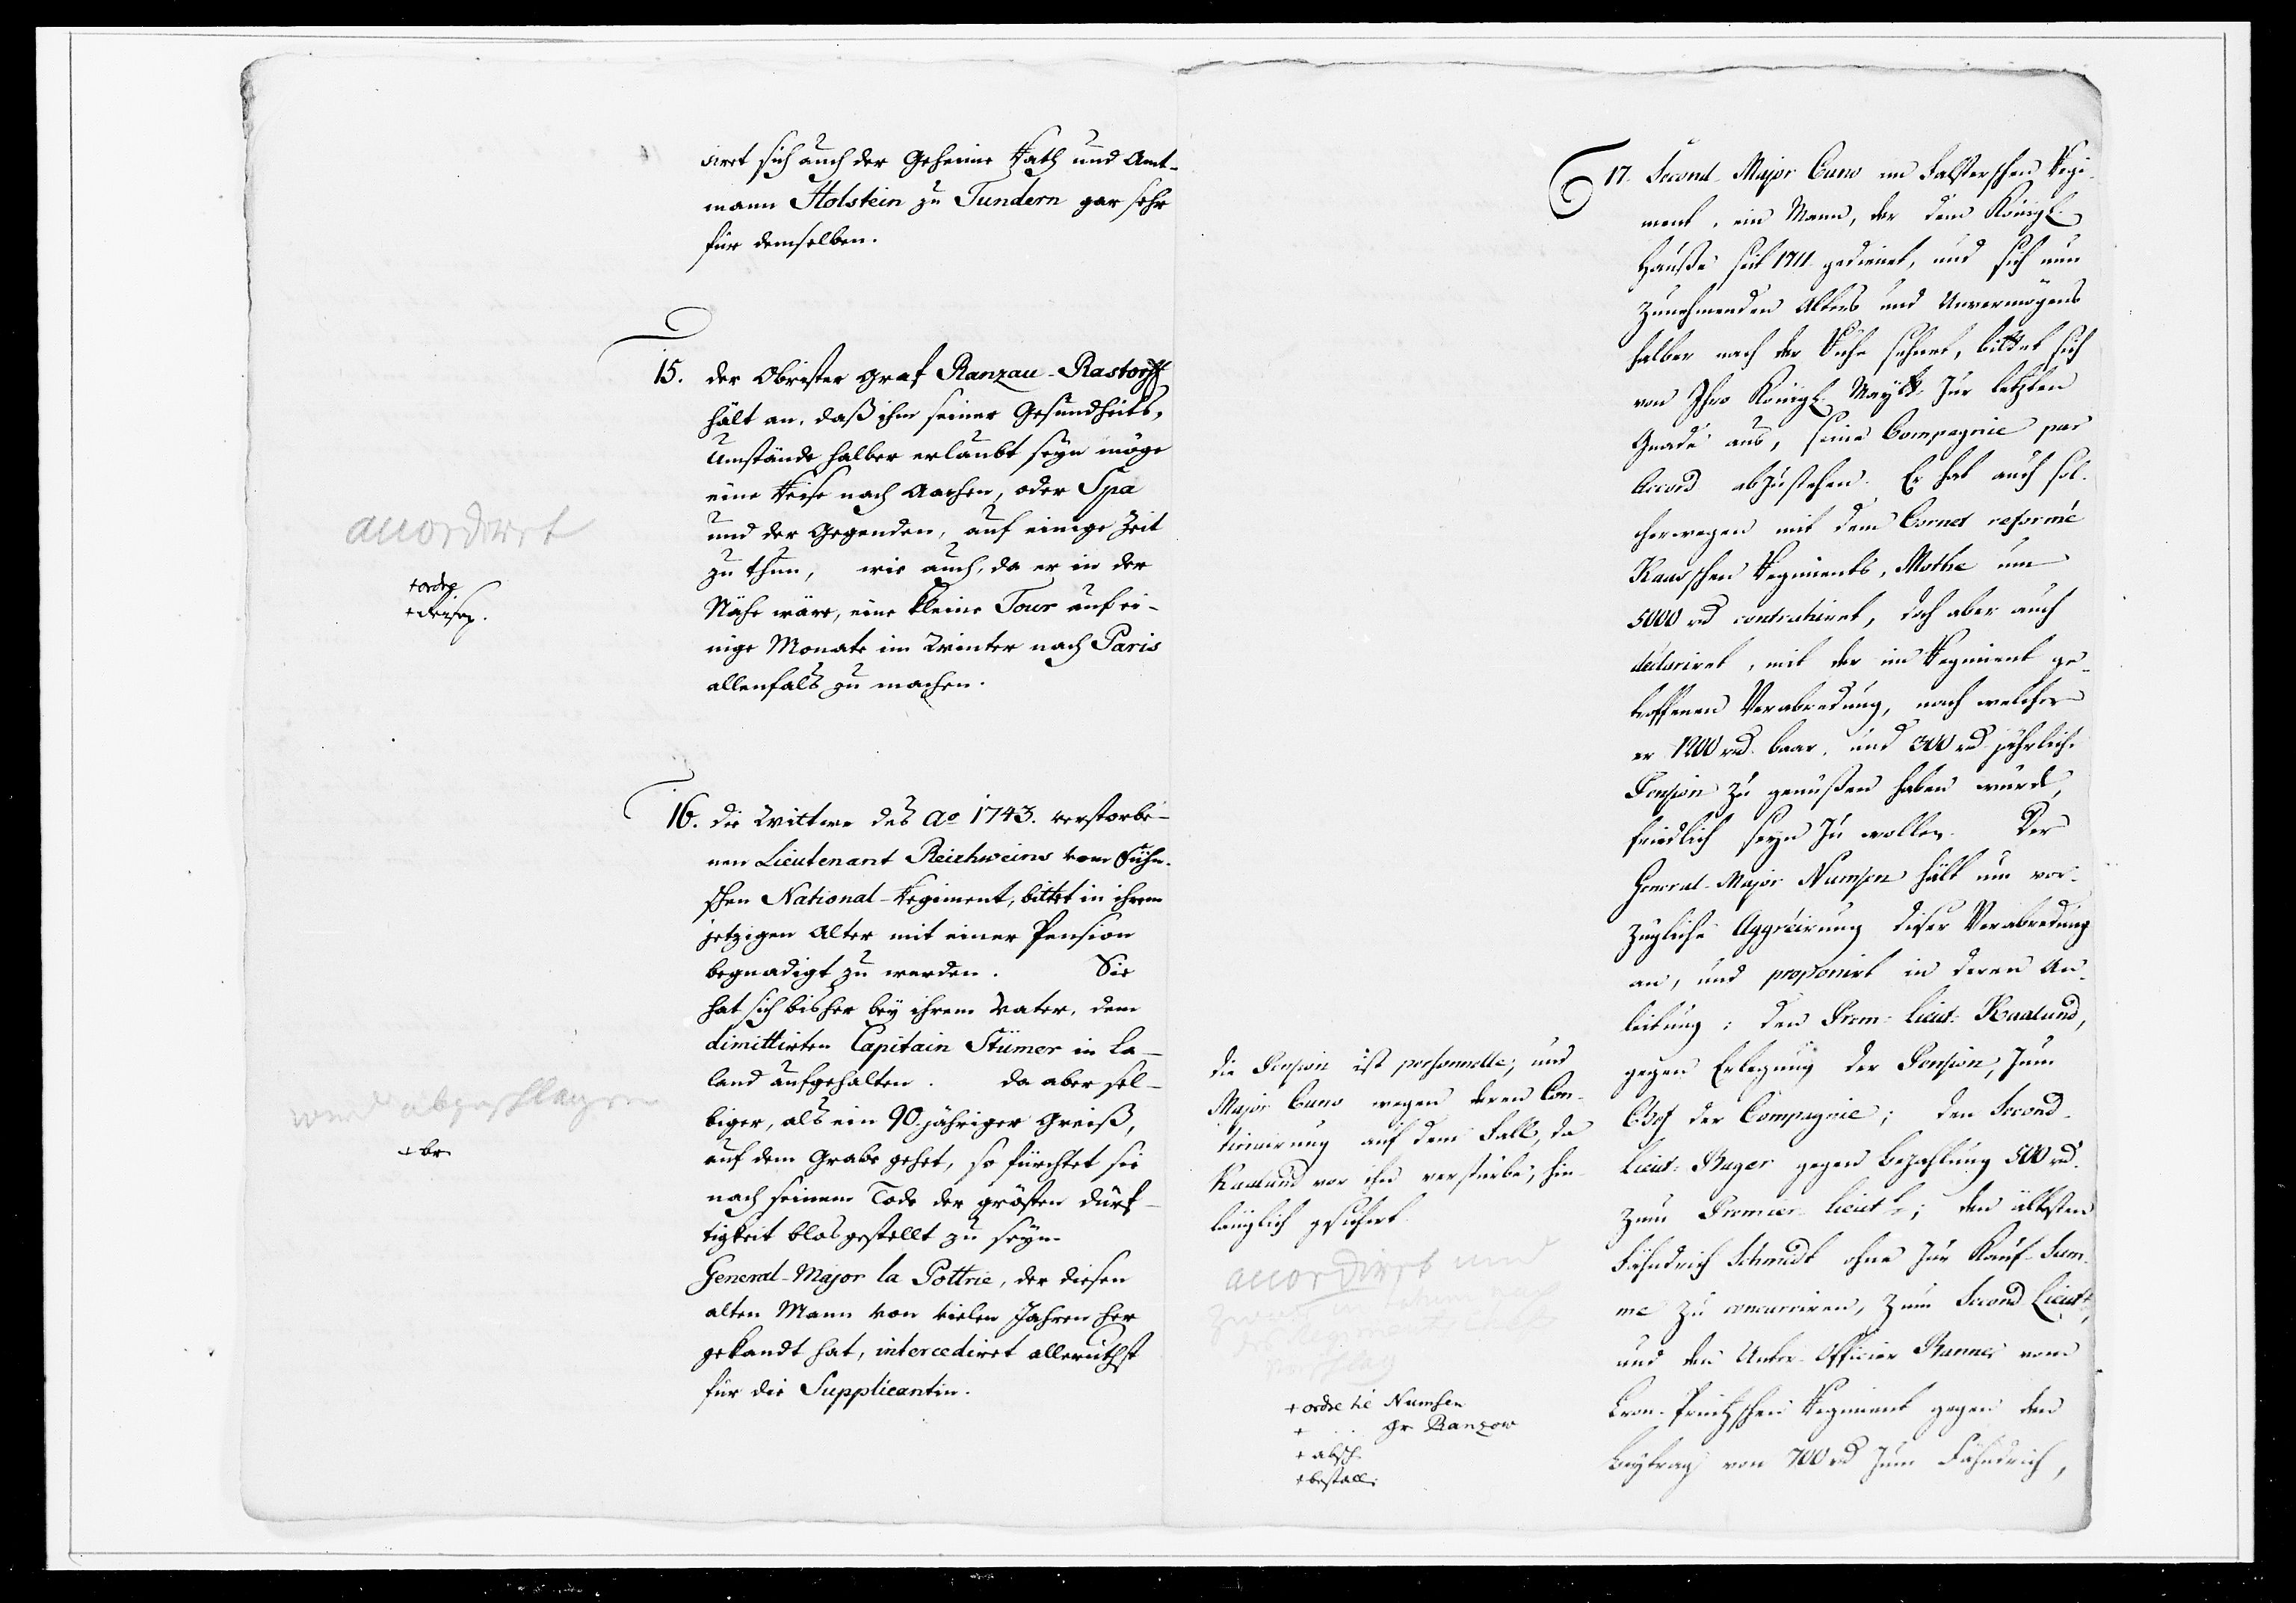 diret sich auch der Geheime Rath und Amt-
mann Holstein zu Tundern gar sehr
für demselben.
15. der Obrister Graf Ranzau-Rastorff
hält an, daß ihm seiner Gesundheits-
Umstände halber erlaubt seyn möge
eine Reise nach Aachen, oder Spa
und der Gegenden, auf einige Zeit
zu thun, wie auch, da er in der
Nähe wäre, eine kleine Tour auf ei-
nige Monate im Winter nach Paris
allenfals zu machen.
accordiret
+ ordre
+ Reisep.
16. die Wittwe des Ao 1743. verstorbe-
nen Lieutenant Reichweins vom Fühn-
schen National-Regiment, bittet in ihrem
jetzigen Alter mit einer Pension
begnadigt zu werden. Sie
hat sich bisher bey ihrem Vater, dem
dimittirten Capitain Stümer in La-
land aufgehalten. da aber sel-
biger, als ein 90. jähriger Greiß,
auf dem Grabe gehet, so fürchtet sie
nach seinem Tode der grösten dürf-
tigkeit blos gestellt zu seyn.
General-Major la Pottrie, der diesen
alten Mann von vielen Jahren her
gekandt hat, intercediret allerutßt
für die Supplicantin.
wird abgeschlagen
+ br.
17. Second-Major Cuno im Falsterschen Regi-
ment, ein Mann, der dem Königl.
Hauße seit 1711 gedienet, und sich nun
zunehmenden Alters und Unvermögens
halber nach der Ruhe sehnet, bittet sich
von Ihro Königl. Maytt. zur letzten
Gnade aus, seine Compagnie par
Accord abzustehen. Er hat auch sol-
cherwegen mit dem Cornet reformé
schen Regiments, Mothe um
5000 rd contrahiret, doch aber auch
declariret, mit der im Regiment ge-
troffenen Verabredung, nach welcher
er 1200 rd. baar, und 300 rd jährlich
Pension zu genußen haben würde,
friedlich seyn zu wollen. Der
General-Major Numsen hält um vor-
zügliche Aggréirung dieser Verabredung
an, und proponirt in deren An-
leitung: den Prem: Lieut: Kaalund,
gegen Erlegung der Pension, zum
Chef der Compagnie; den Second-
Lieut: Bager gegen Bezahlung 500 rd.
zum Premier Lieut.; den ältesten
Fähndrich Schmidt ohne zur Kauf-Sum-
me zu concurriren, zum Second Lieut.,
und den Unter-Officier vom
Cron-Printzschen Regiment gegen den
Beytrag von 700 rd zum Fähndrich,
die Pension ist personnelle; und
Major Cuno wegen deren Con-
tinuirung auf dem Fall, da
Kaalund vor ihm verstürbe, hin-
länglich gesichert.
accordiret und
+ ordre til Numsen
+ . . . gr. Ranzow
+ absch.
+ bestall: